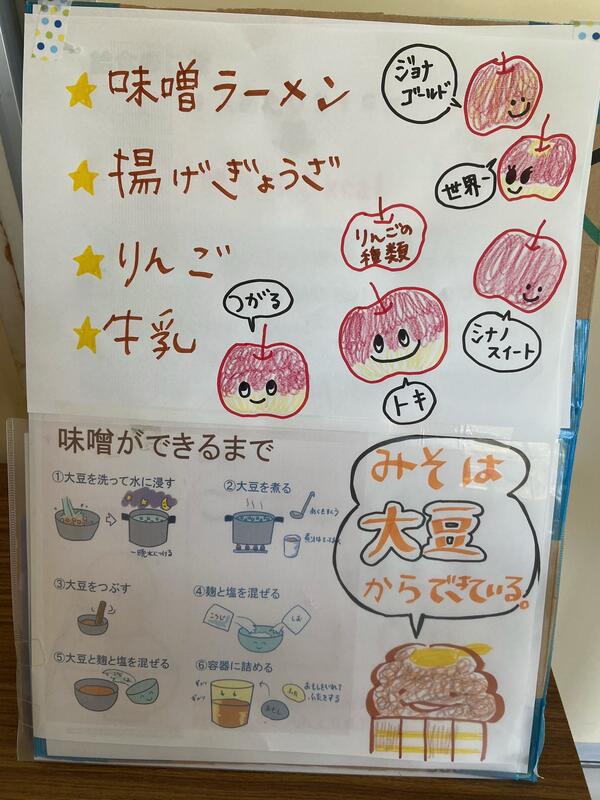 味噌ラーメン
揚げぎょうざ
りんご
牛乳
ジョナ
ゴールド
世界一
りんごの
種類
シナノ
スイート
つがる
トキ
味噌ができるまで
①大豆を洗って水に浸す
一晩水につける
②大豆を煮る
あくをすくう
③大豆をつぶす
④麹と塩を混ぜる
こうじ
しお
⑤大豆と麹と塩を混ぜる
⑥容器に詰める
ギュッ
ギュッ
おもし
ふた
おもしをいれて
ふたをする
みそは
大豆
からできている。